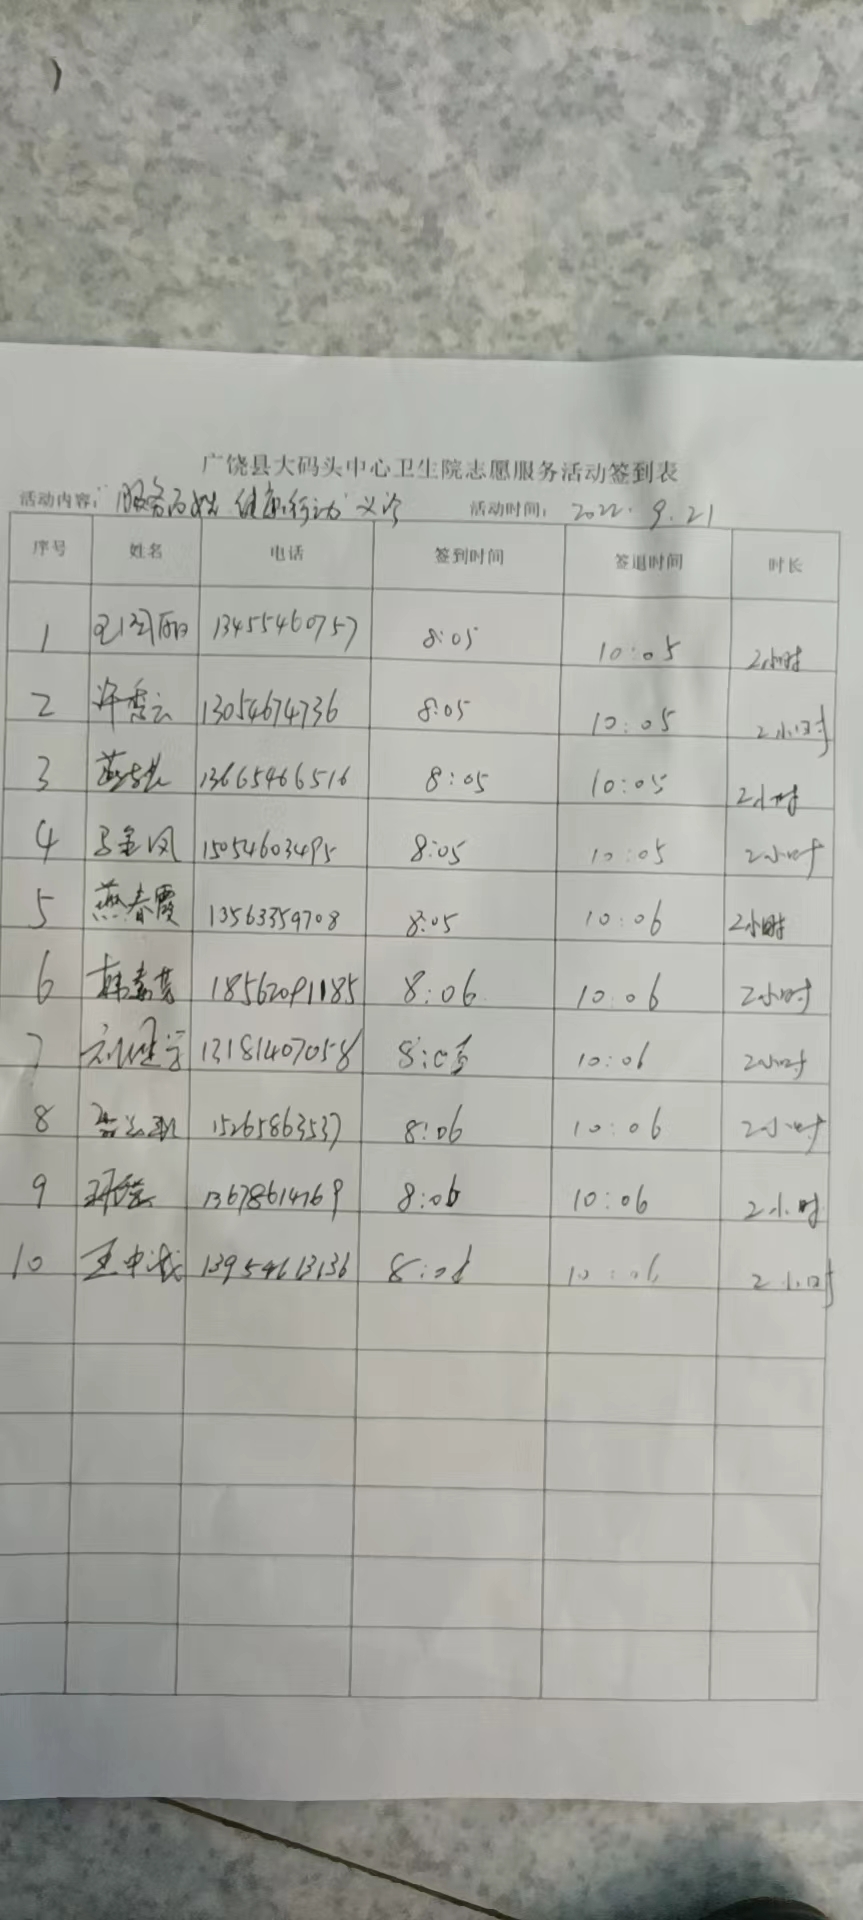 广饶县大码头中心卫生院志愿服务活动签到表
活动内容：“服务百姓 健康行动”义诊 活动时间：2022.9.21
序号 姓名 电话 签到时间 签退时间 时长
1 13455460757 8:05 10:05 2小时
2 许秀云 13054674736 8:05 10:05 2小时
3 13665466516 8:05 10:05 2小时
4 马金凤 15054603495 8:05 10:05 2小时
5 燕春霞 13563359708 8:05 10:06 2小时
6 韩素芳 18562091185 8:06 10:06 2小时
7 13181407058 10:06 2小时
8 15265863537 8:06 10:06 2小时
9 13678614769 8:06 10:06 2小时
10 王中 13954613136 8:06 10:06 2小时